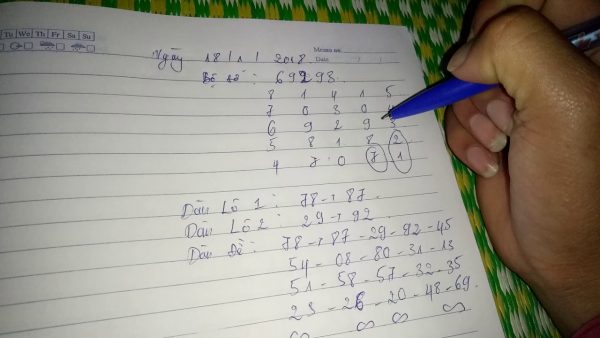 Tu We Th Fr Sa Su
Memo no.
Date / /
Ngày 18 / 1 / 2018.
Bộ số : 69293.
8 1 4 1 5
7 0 3 0 4
6 9 2 9 3
5 8 1 8 2
4 7 0 7 1
Dàn Lô 1 : 78 - 87.
Dàn Lô 2 : 29 - 92
Dàn Đề : 78 - 87 - 29 - 92 - 45
54 - 08 - 80 - 31 - 13
51 - 58 - 57 - 32 - 35
23 - 26 - 20 - 48 - 69.